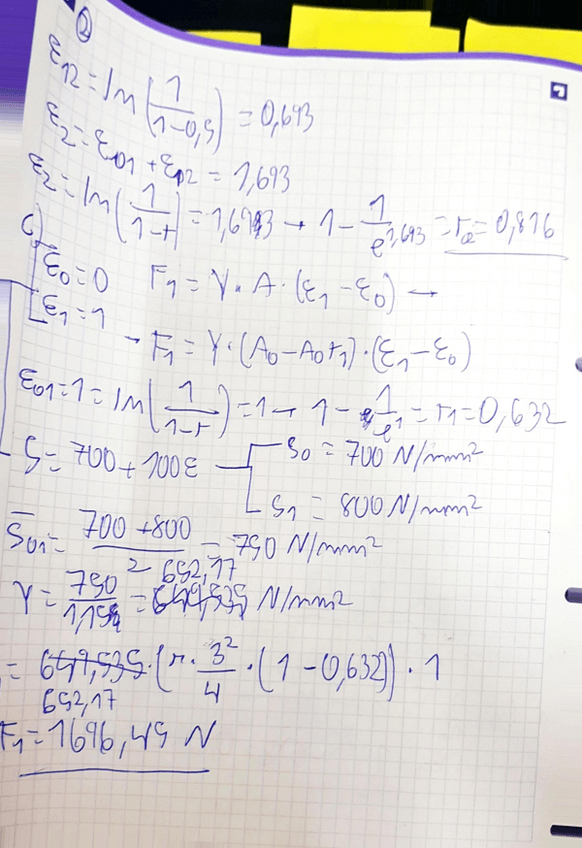 ②
ε12 = ln(1/(1-0,5)) = 0,693
ε2 = ε01 + ε02 = 1,693
ε2 = ln(1/(1-r)) = 1,693 → 1 - 1/e^1,693 = r2 = 0,816
c)
ε0 = 0 F1 = Y · A · (ε1 - ε0) →
ε1 = 1
→ F1 = Y · (A0 - A0r1) · (ε1 - ε0)
ε01 = 1 = ln(1/(1-r)) = 1 → 1 - 1/e^1 = r1 = 0,632
S = 700 + 100ε S0 = 700 N/mm²
S1 = 800 N/mm²
S̄01 = (700 + 800)/2 = 750 N/mm²
652,17
Y = 750/1,15 = 649,535 N/mm²
= 649,535 · (π · 3²/4 · (1 - 0,632)) · 1
652,17
F1 = 1696,45 N